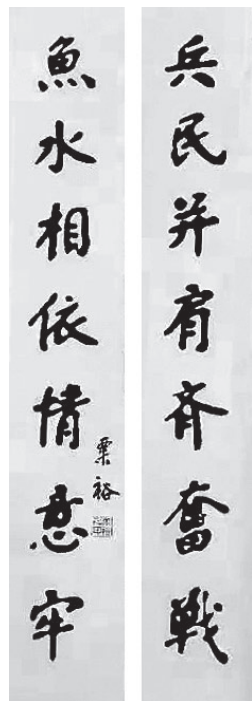 兵民并肩齐奋戰
魚水相依情意牢
粟裕